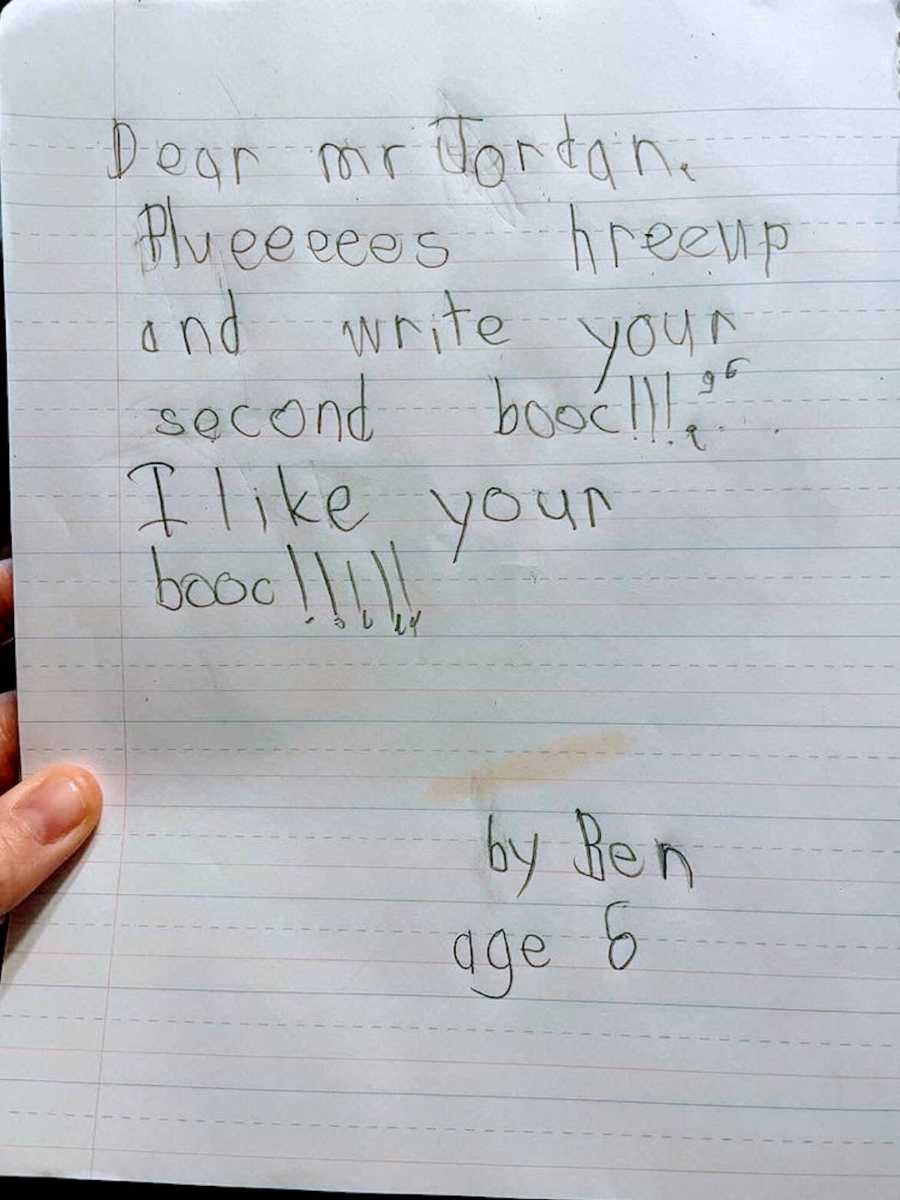 Dear mr Jordan.
Plueeeeees hreeup
and write your
second booc!!!
I like your
booc!!!!!!
by Ben
age 6